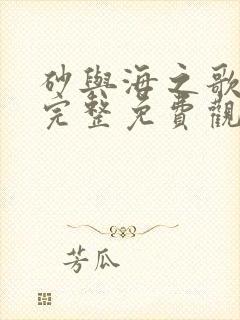 砂與海之歌
完整免費觀
芳瓜